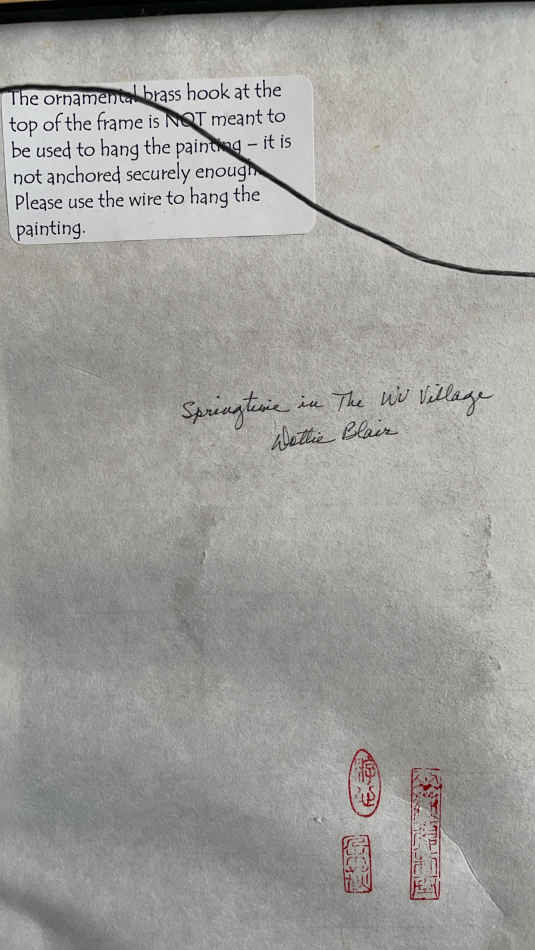 The ornamental brass hook at the
top of the frame is NOT meant to
be used to hang the painting – it is
not anchored securely enough.
Please use the wire to hang the
painting.
Springtime in The WV Village
Dottie Blair